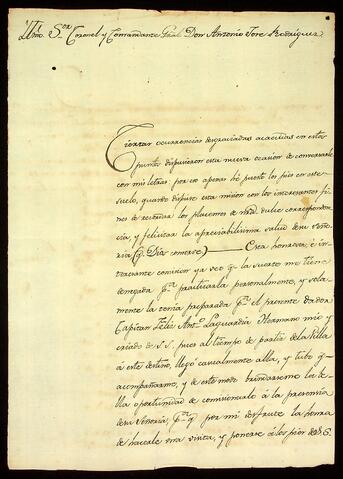 Illmo. Sor. Coronel y Comandante Gral. Don Antonio Jose Rodriguez.
Ciertas ocurrencias desgraciadas acaecidas en estos
puntos dispusieron esta nueva ocasion de conversarle
con mis letras: por q.e apenas hé puesto los pies en este
suelo, quando dispuse esta mision con los interesantes fi-
nes de recordar los placemes de nra. dulce correspondencia,
cia, y felicitar la apreciabilisima salud de su Seño-
ria (q. Dios conserve) — Esta honrosa, é in-
teresante comision ya veo q. la suerte me tiene
denegada p.a practicarla personalmente, y sola-
mente la tenia preparada p.a el presente dador
Capitan Felis Ant.o Laguardia Hermano mio y
criado de S. S. pues al tiempo de partir de la Villa
á este destino, llegó casualmente allá, y tubo q.
acompañarme, y de este modo brindarseme la be-
lla oportunidad de comisionarlo á la presencia
de su Señoria, p.a q. por mi disfrute la honra
de hacerle una visita, y ponerse á los pies de S. S.